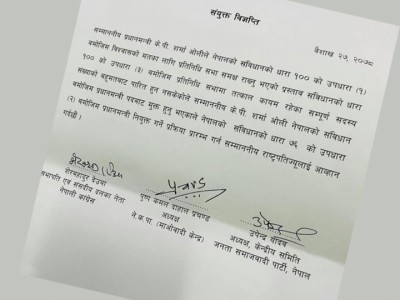 संयुक्त विज्ञप्ति
बैशाख २७, २०७८
सम्माननीय प्रधानमन्त्री के.पी. शर्मा ओलीले नेपालको संविधानको धारा १०० को उपधारा (१)
बमोजिम विश्वासको मतका लागि प्रतिनिधि सभा समक्ष राख्नु भएको प्रस्ताव संविधानको धारा
१०० को उपधारा (३) बमोजिम प्रतिनिधि सभामा तत्काल कायम रहेका सम्पूर्ण सदस्य
सख्याको बहुमतबाट पारित हुन नसकेकोले सम्माननीय के.पी. शर्मा ओली नेपालको संविधान
बमोजिम प्रधानमन्त्री पदबाट मुक्त हुनु भएकाले नेपालको संविधानको धारा ७६ को उपधारा
(२) बमोजिम प्रधानमन्त्री नियुक्त गर्ने प्रक्रिया प्रारम्भ गर्न सम्माननीय राष्ट्रपतिज्यूलाई आव्हान
गर्दछौं ।
शेरबहादुर देउवा
सभापति एवं संसदीय दलका नेता
नेपाली कांग्रेस
पुष्प कमल दाहाल प्रचण्ड
अध्यक्ष
ने.क.पा. (माओवादी केन्द्र)
उपेन्द्र यादव
अध्यक्ष, केन्द्रीय समिति
जनता समाजवादी पार्टी, नेपाल